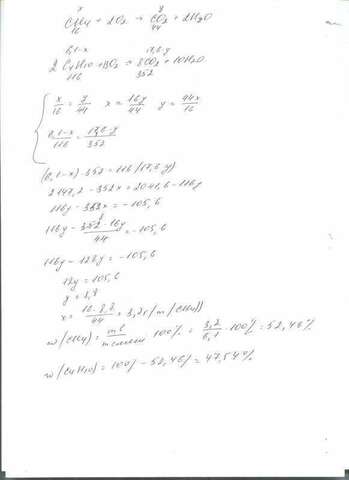 x y
CH4 + 2O2 → CO2 + 2H2O
16 44
6,1-x 17,6-y
2 C4H10 + 13O2 = 8CO2 + 10H2O
116 352
x/16 = y/44 x = 16y/44 y = 44x/16
6,1-x/116 = 17,6-y/352
(6,1-x)·352 = 116(17,6-y)
2147,2 - 352x = 2041,6 - 116y
116y - 352x = -105,6
116y - 352·16y/44 = -105,6
116y - 128y = -105,6
12y = 105,6
y = 8,8
x = 16·8,8/44 = 3,2г (m(CH4))
w(CH4) = mв/mсмеси · 100% = 3,2/6,1 · 100% = 52,46%
w(C4H10) = 100% - 52,46% = 47,54%